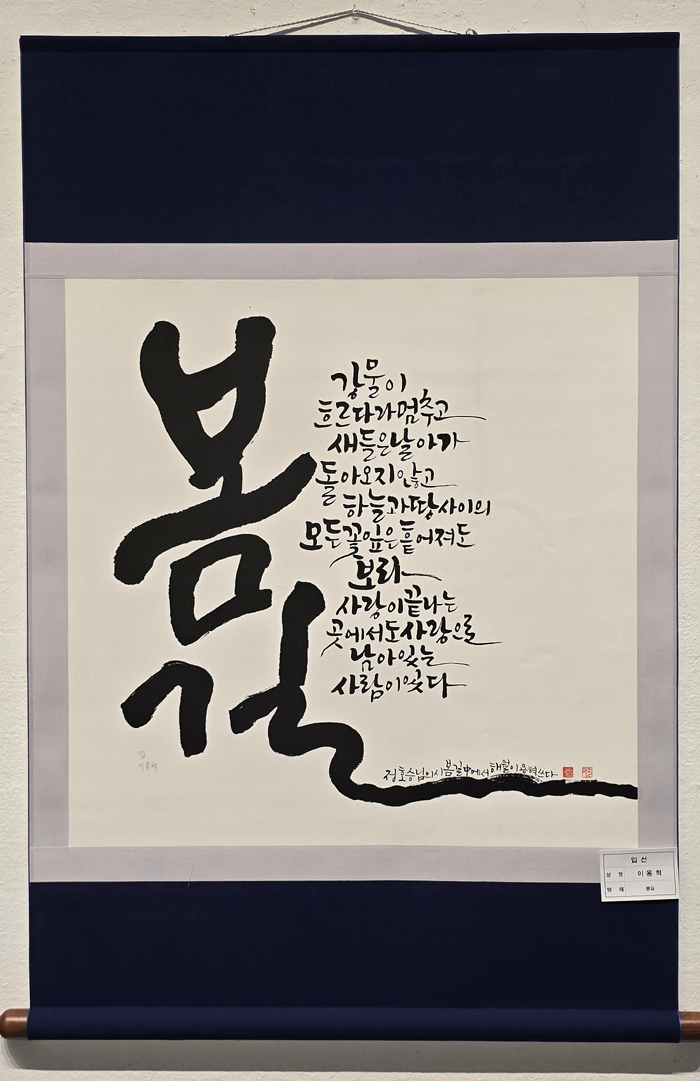 봄
길
강물이
흐르다가 멈추고
새들은 날아가
돌아오지 않고
하늘과 땅 사이의
모든 꽃잎은 흩어져도
보라
사랑이 끝나는
곳에서도 사랑으로
남아있는
사람이 있다
정호승님의 시 봄길 中에서 이용혁 쓰다
이용혁
입 선
성 명 이 용 혁
명 제 봄길